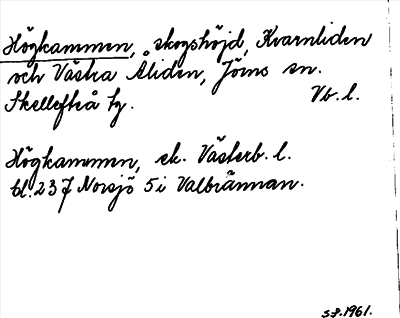 Högkammen, skogshöjd, Kvarnliden
och Västra Åliden, Jörns sn.
Skellefteå tg. Vb. l.
Högkammen, ek. Västerb. l.
bl. 237 Norsjö 5 i Valbrännan.
S.F. 1961.